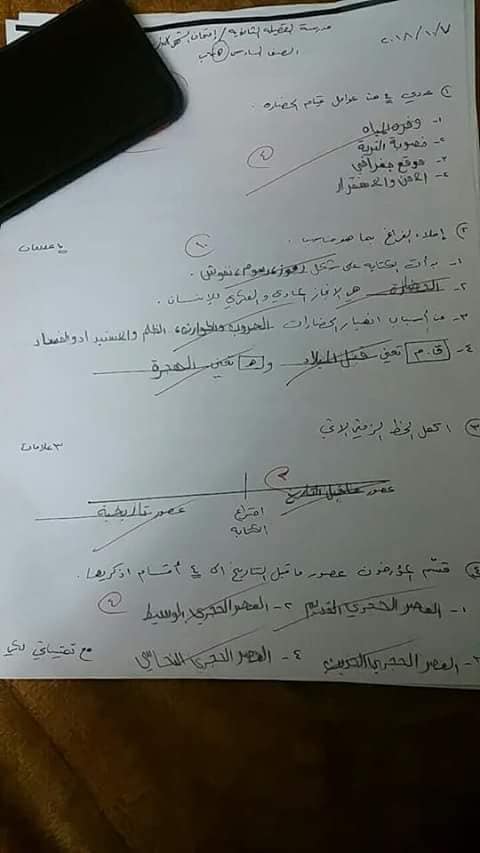 ٢٠١٨/١٠/٧
مدرسة الثانوية / امتحان الشهر الاول
الصف السادس
١) عددي ٤ من عوامل قيام الحضارة.
١- وفرة المياه
٢- خصوبة التربة
٣- موقع جغرافي
٤- الامن والاستقرار
٤
٢) إملاء الفراغ بما هو مناسب.
١٠ علامات
١٠
١- بدأت الكتابة على شكل رموز، رسوم، نقوش.
٢- الحضارة هي الانجاز المادي والفكري للإنسان.
٣- من أسباب انهيار الحضارات الحروب والكوارث، الظلم والاستبداد والفساد
٤- ق.م تعني قبل الميلاد و هـ تعني الهجرة
٣) اكمل الخط الزمني الاتي
٣ علامات
٣
عصور ماقبل التاريخ
اختراع الكتابة
عصور تاريخية
٤) قسّم المؤرخون عصور ما قبل التاريخ الى ٤ أقسام اذكريها.
٤
١- العصر الحجري القديم ٢- العصر الحجري الوسيط
٣- العصر الحجري الحديث ٤- العصر الحجري النحاسي
مع تمنياتي